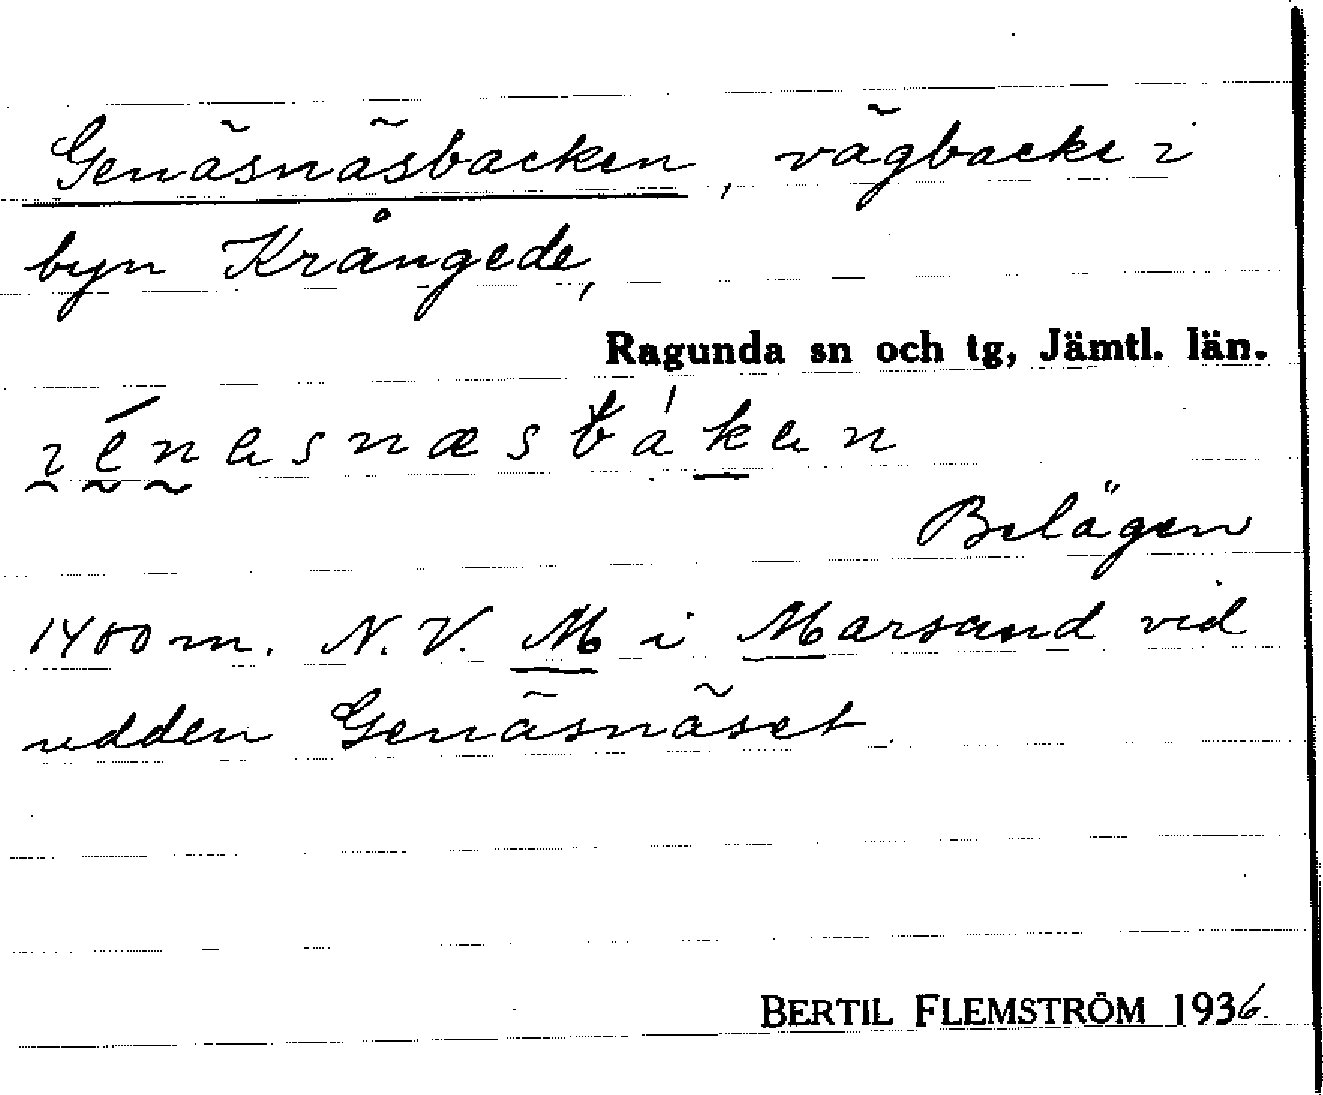 Genäsnäsbacken, vägbacke i
byn Krångede,
Ragunda sn och tg, Jämtl. län.
Belägen
1400 m. N.V. M i Marsund vid
udden Genäsnäset.
BERTIL FLEMSTRÖM 1936.